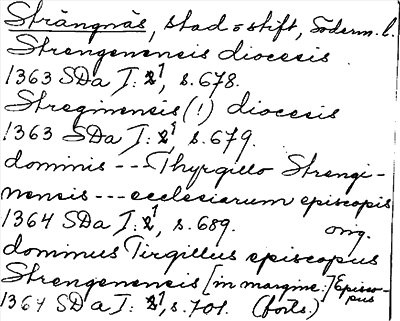 Strängnäs, stad o stift, Söderm. l.
Strengenensis diocesis
1363 SDa I: 2¹, s. 678.
Streginensis (!) diocesis
1363 SDa I: 2¹, s. 679.
dominis --- Thyrgillo Strengi-
nensis --- ecclesiarum episcopis
1364 SDa I: 2¹, s. 689. orig.
dominus Tirgillus episcopus
Strengenensis [in margine:] Episco-
pus
1364 SDa I: 2¹, s. 701. (forts.)